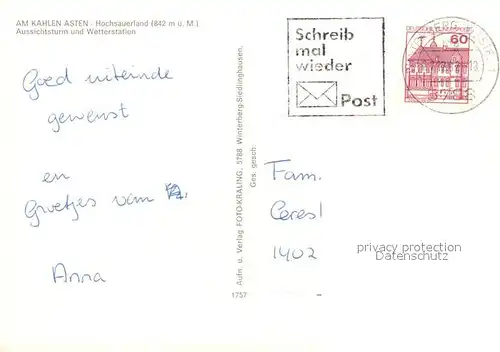 AM KAHLEN ASTEN - Hochsauerland (842 m ü. M.)
Aussichtsturm und Wetterstation
Goed uiteinde
gewenst
en
Groetjes van
Anna
Aufn. u. Verlag FOTO-KRALING, 5788 Winterberg-Siedlinghausen,
Ges. gesch.
1757
Schreib
mal
wieder
Post
60
5788
Fam.
1402
privacy protection
Datenschutz